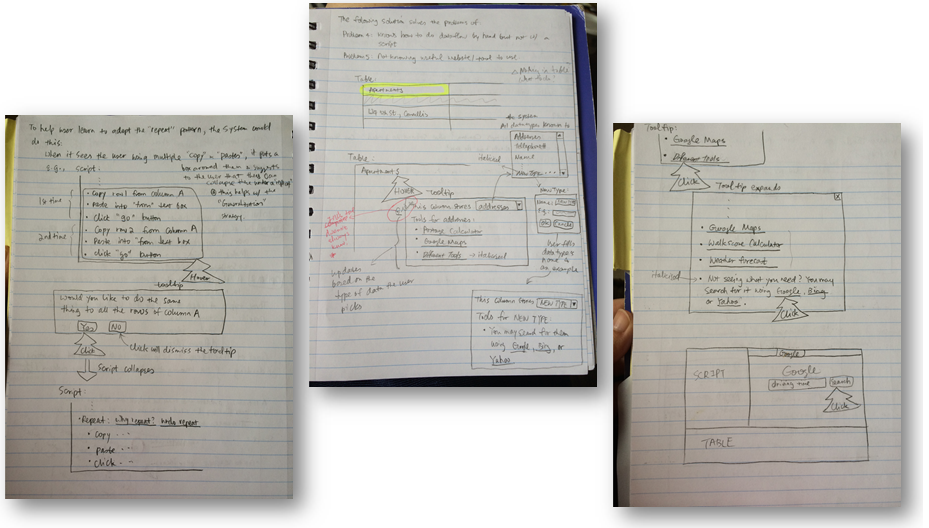 To help user learn to adopt the "repeat" pattern, the system could
do this:
When it sees the user using multiple "copy" - "pastes", it puts a
box around them & suggests
to the user that they can
e.g., Script:
this helps w/ the
"Generalization"
strategy.
1st time
• Copy row1 from column A
• Paste into "from" text box
• Click "go" button
2nd time
• Copy row2 from column A
• Paste into "from text box
• click "go" button
Hover
tooltip
Would you like to do the same
thing to all the rows of column A
Yes No
Click
click will dismiss the tooltip
Script collapses
Script:
• Repeat: why repeat? undo repeat
• copy ...
• paste ...
• click ...
The following solution solves the problems of:
Problem A: Knows how to do dataflow by hand but not w/ a
script
Not knowing useful website/tool to use
Table:
Apartments
Table:
Apartments
Hover
Tooltip
Italicized
Addresses
Telephone#
Name
New Type...
This column stores addresses
Tools for addresses:
• Postage Calculator
• Google Maps
• Different Tools → italicized
New Type:
Name:
E.g.:
OK Cancel
updates
based on the
type of data the user
picks
User fills
data type's
name &
an example
This Column stores NEW TYPE
Tools for NEW TYPE:
• You may search for them
using Google, Bing, or
Yahoo
Tooltip:
• Google Maps
• Different Tools
Click
Tooltip expands
X
• Google Maps
• Walkscore Calculator
• Weather forecast
Italicized
• Not seeing what you need? You may
Search for it using Google, Bing
or Yahoo.
Click
Google
SCRIPT
Google
driving time Search
Click
TABLE